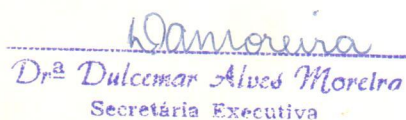 DAMoreira
Drª Dulcemar Alves Moreira
Secretária Executiva